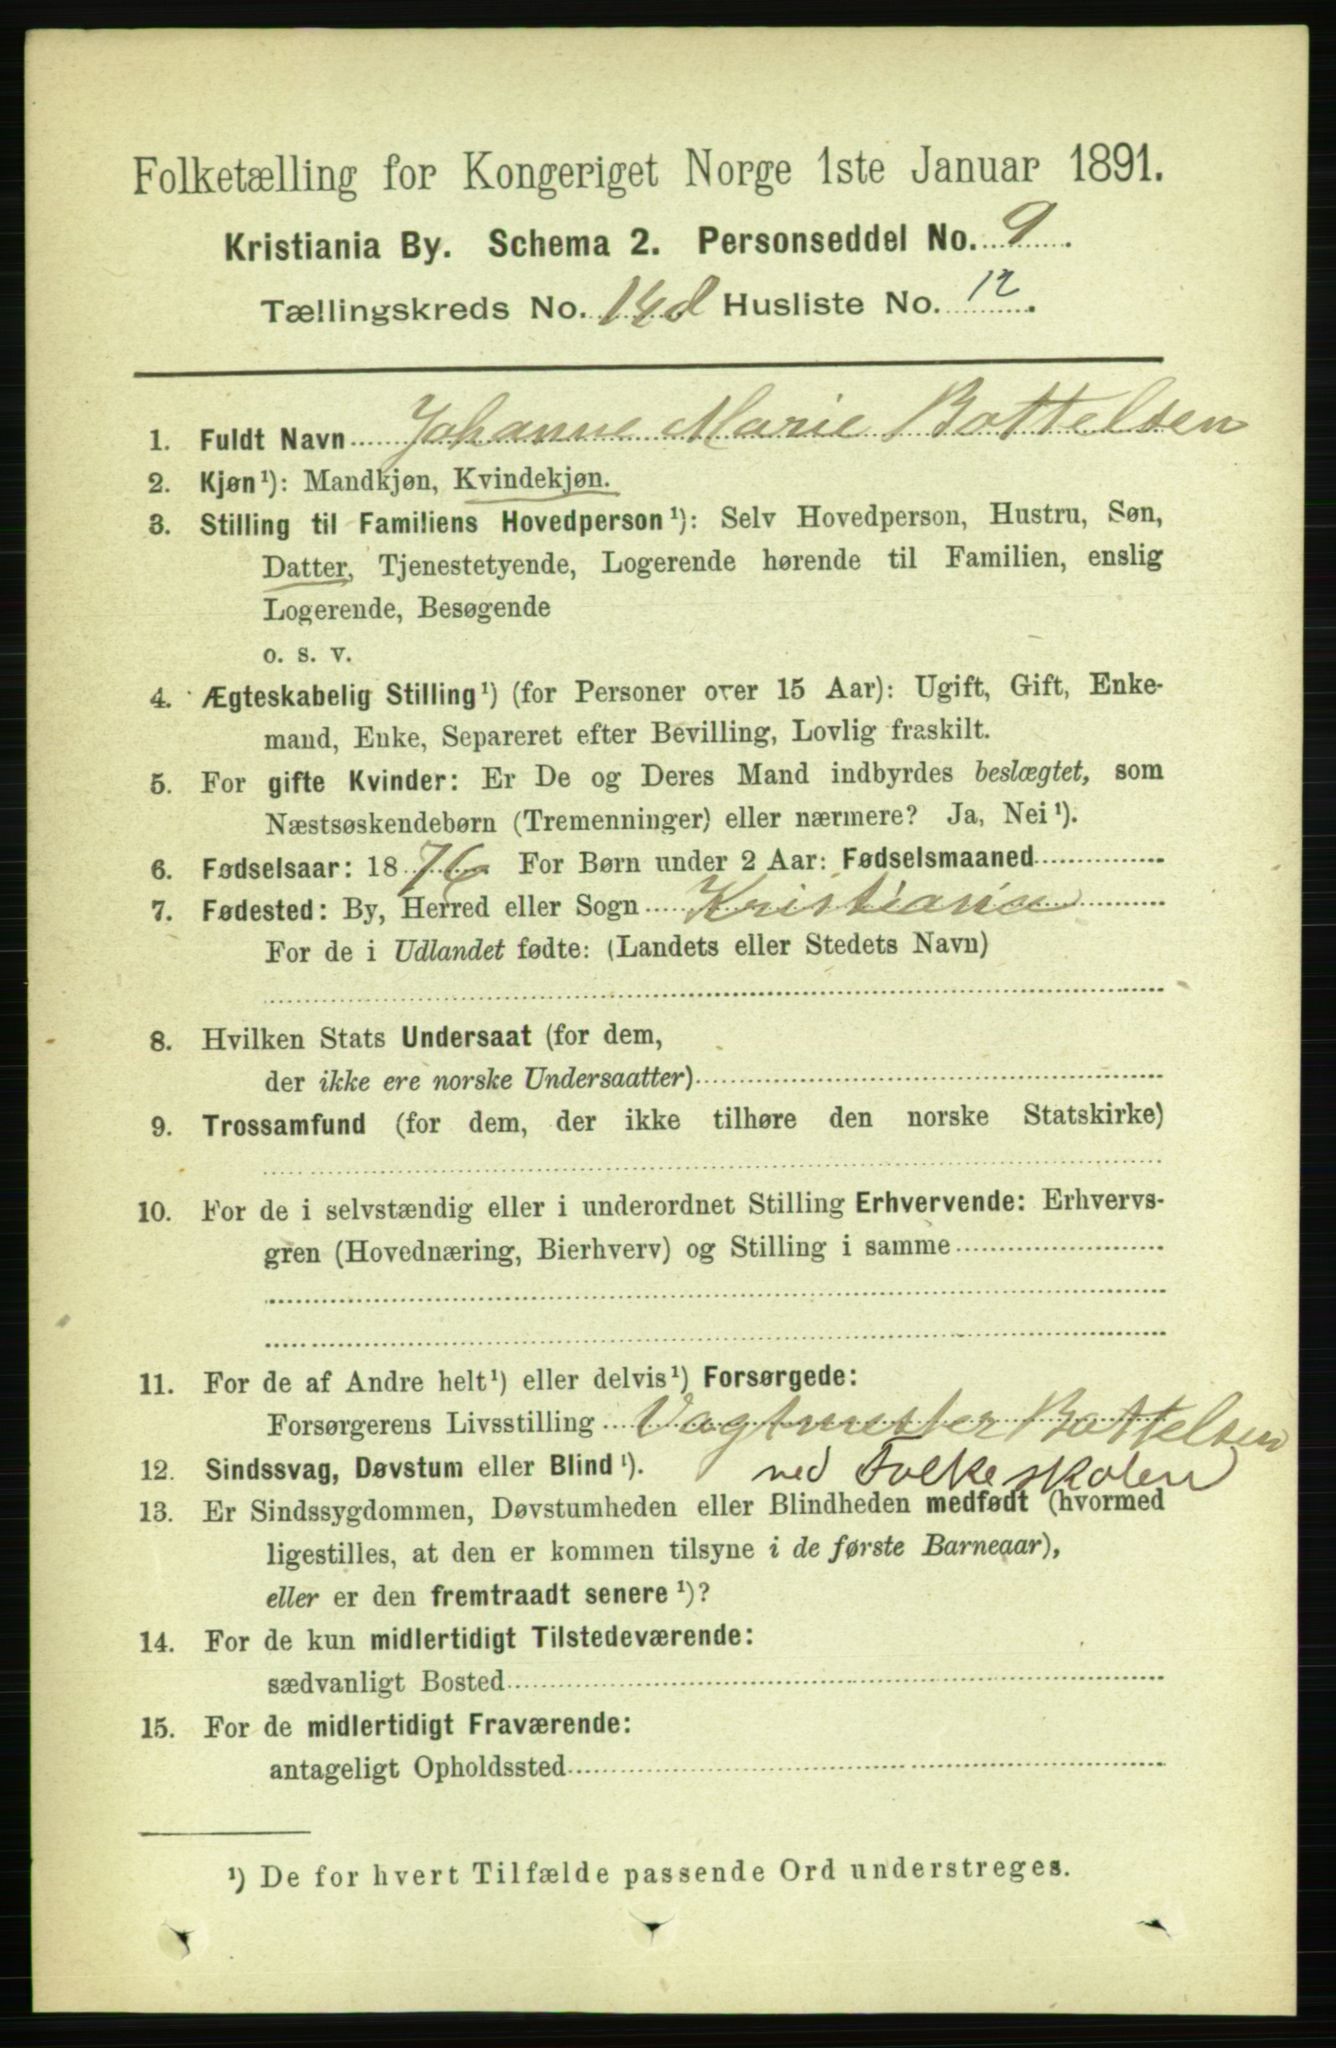 Folketælling for Kongeriget Norge 1ste Januar 1891.
Kristiania By. Schema 2. Personseddel No. 9.
Tællingskreds No. 14d Husliste No. 12.
1. Fuldt Navn Johanne Marie Bottelsen
2. Kjøn¹): Mandkjøn, Kvindekjøn.
3. Stilling til Familiens Hovedperson¹): Selv Hovedperson, Hustru, Søn,
Datter, Tjenestetyende, Logerende hørende til Familien, enslig
Logerende, Besøgende
o. s. v.
4. Ægteskabelig Stilling¹) (for Personer over 15 Aar): Ugift, Gift, Enke-
mand, Enke, Separeret efter Bevilling, Lovlig fraskilt.
5. For gifte Kvinder: Er De og Deres Mand indbyrdes beslægtet, som
Næstsøskendebørn (Tremenninger) eller nærmere? Ja, Nei¹).
6. Fødselsaar: 1876 For Børn under 2 Aar: Fødselsmaaned
7. Fødested: By, Herred eller Sogn Kristiania
For de i Udlandet fødte: (Landets eller Stedets Navn)
8. Hvilken Stats Undersaat (for dem,
der ikke ere norske Undersaatter)
9. Trossamfund (for dem, der ikke tilhøre den norske Statskirke)
10. For de i selvstændig eller i underordnet Stilling Erhvervende: Erhvervs-
gren (Hovednæring, Bierhverv) og Stilling i samme
11. For de af Andre helt¹) eller delvis¹) Forsørgede:
Forsørgerens Livsstilling Vagtmester Bottelsen
ved Folkeskolen
12. Sindssvag, Døvstum eller Blind¹).
13. Er Sindssygdommen, Døvstumheden eller Blindheden medfødt (hvormed
ligestilles, at den er kommen tilsyne i de første Barneaar),
eller er den fremtraadt senere¹)?
14. For de kun midlertidigt Tilstedeværende:
sædvanligt Bosted
15. For de midlertidigt Fraværende:
antageligt Opholdssted
¹) De for hvert Tilfælde passende Ord understreges.